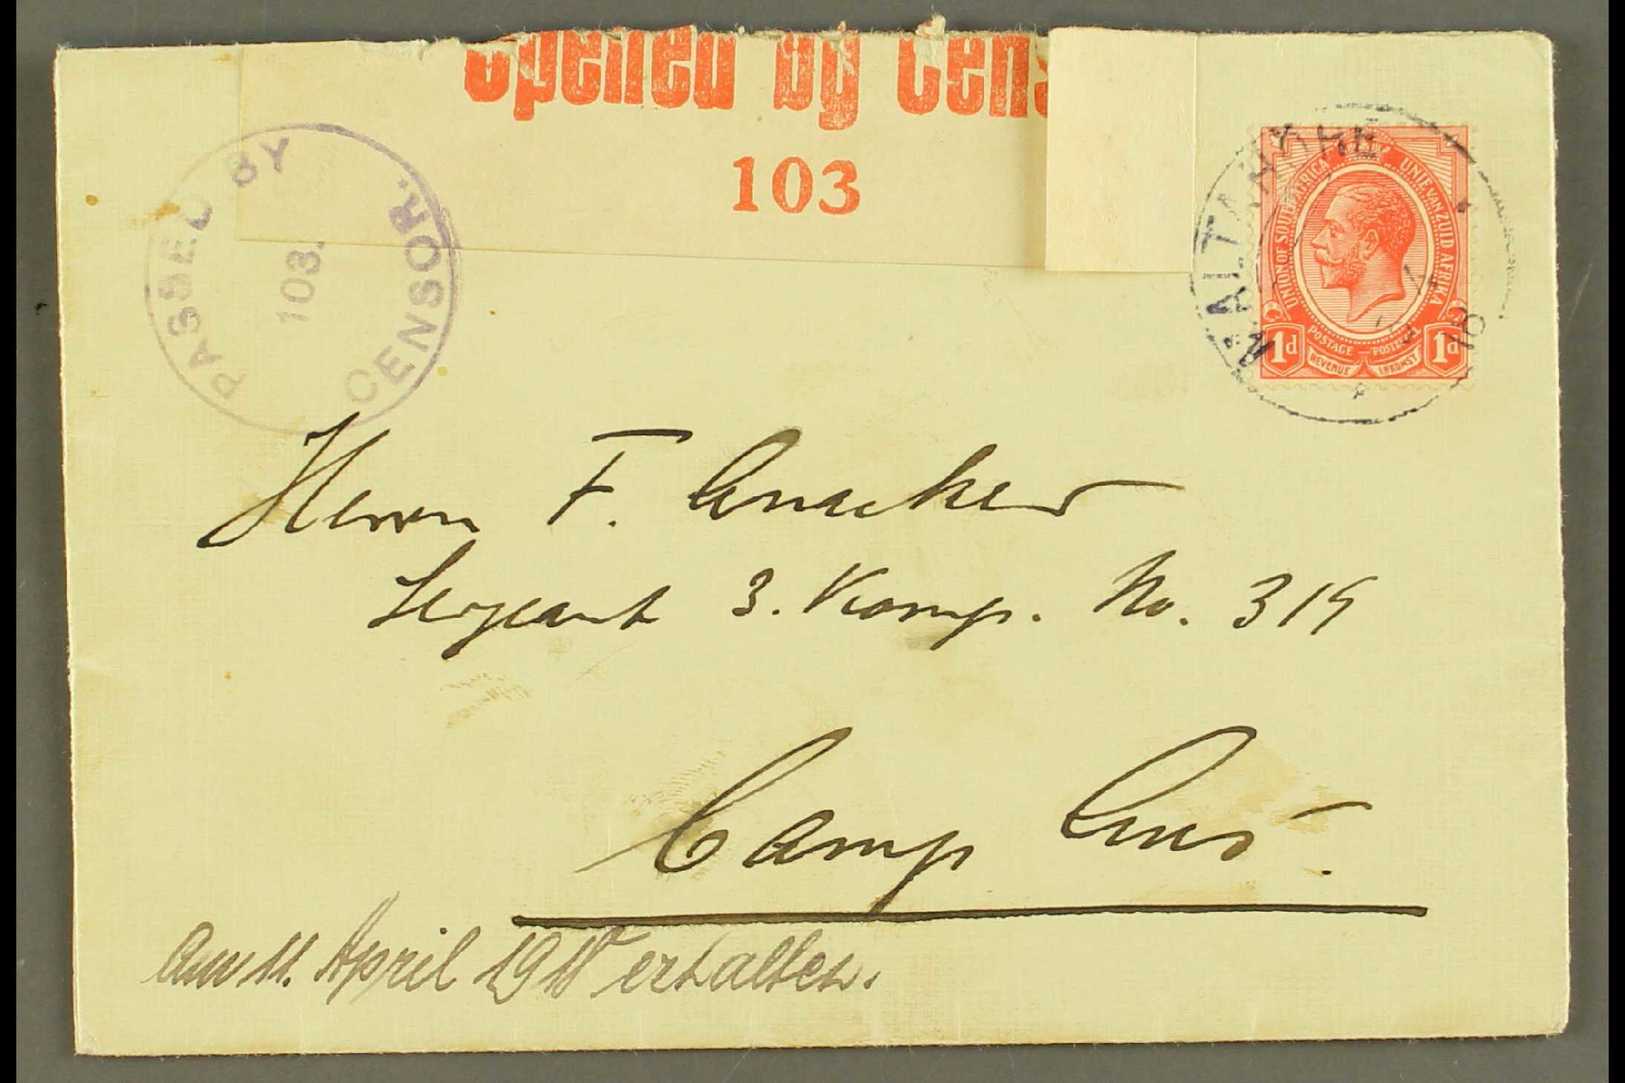 Opened by Cens
103
PASSED BY
103.
CENSOR.
MALTAHÖHE
18
UNION OF SOUTH AFRICA UNIE VAN ZUID AFRIKA
1d POSTAGE POSTZEGEL 1d
REVENUE INKOMST
Herrn F.
Sergeant 3. Komp. No. 319
Camp Aus.
Am 11. April 1918 erhalten.